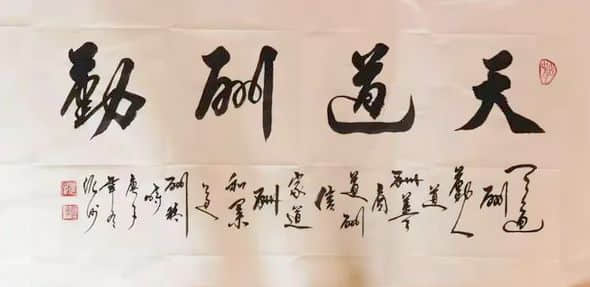 天道酬勤
天道
酬
勤人
道
酬善
商
道酬
信
家道
酬
和業
道
酬精
時
庚子